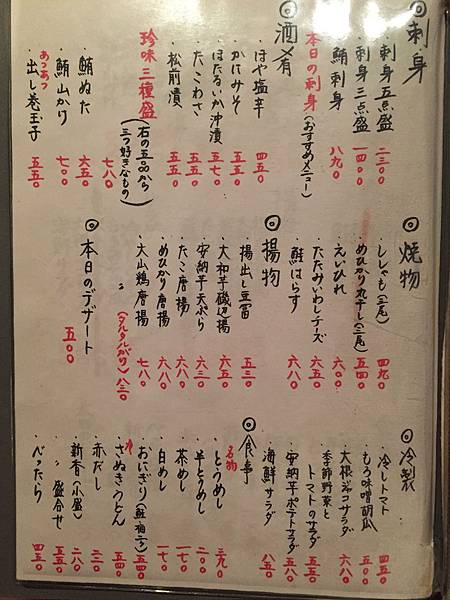 ◎刺身
・刺身五点盛 二三〇〇
・刺身三点盛 一四〇〇
・鮪刺身 八九〇
本日の刺身(おすすめメニュー)
◎酒肴
・ほや塩辛 四五〇
・かにみそ 五五〇
・ほたるいか沖漬 五七〇
・たこわさ 五五〇
・松前漬 五五〇
珍味三種盛(右の五品から三つ好きなもの) 七八〇
・鮪ぬた 六五〇
・鮪山かけ 七〇〇
あつあつ
・出し巻玉子 五五〇
◎焼物
・ししゃも(三尾) 四九〇
・めひかり丸干し(三尾) 五四〇
・えいひれ 六〇〇
・たたみいわしチーズ 六五〇
・鮭はらす 六八〇
◎揚物
・揚出し豆冨 五三〇
・大和芋磯辺揚 六五〇
・安納芋天ぷら 六三〇
・たこ唐揚 六八〇
・めひかり唐揚 六八〇
・大山鶏唐揚 七八〇
〃(タルタルがけ) 八三〇
◎本日のデザート 五〇〇
◎冷製
・冷しトマト 四五〇
・もろ味噌胡瓜 五〇〇
・大根ジャコサラダ 六八〇
・季節野菜と
トマトのサラダ 五五〇
・安納芋ポテトサラダ 五八〇
・海鮮サラダ 八五〇
◎食事
名物
・とうめし 三九〇
・半とうめし 二〇〇
・茶めし 一七〇
・白めし 一七〇
・おにぎり(鮭・梅二ケ) 五四〇
・さぬきうどん 五四〇
・赤だし 三二〇
・新香(小盛) 二八〇
・〃盛合せ 五五〇
・べったら 四五〇